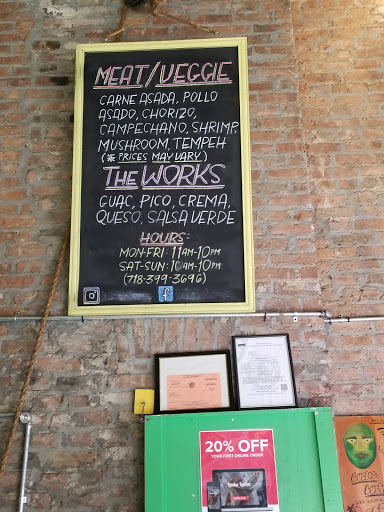 MEAT/VEGGIE
CARNE ASADA, POLLO
ASADO, CHORIZO,
CAMPECHANO, SHRIMP,
MUSHROOM, TEMPEH
(* PRICES MAY VARY)
THE WORKS
GUAC, PICO, CREMA,
QUESO, SALSA VERDE
HOURS:
MON-FRI: 11AM-10PM
SAT-SUN: 10AM-10PM
(718-399-3696)
f
20% OFF
YOUR FIRST ONLINE ORDER